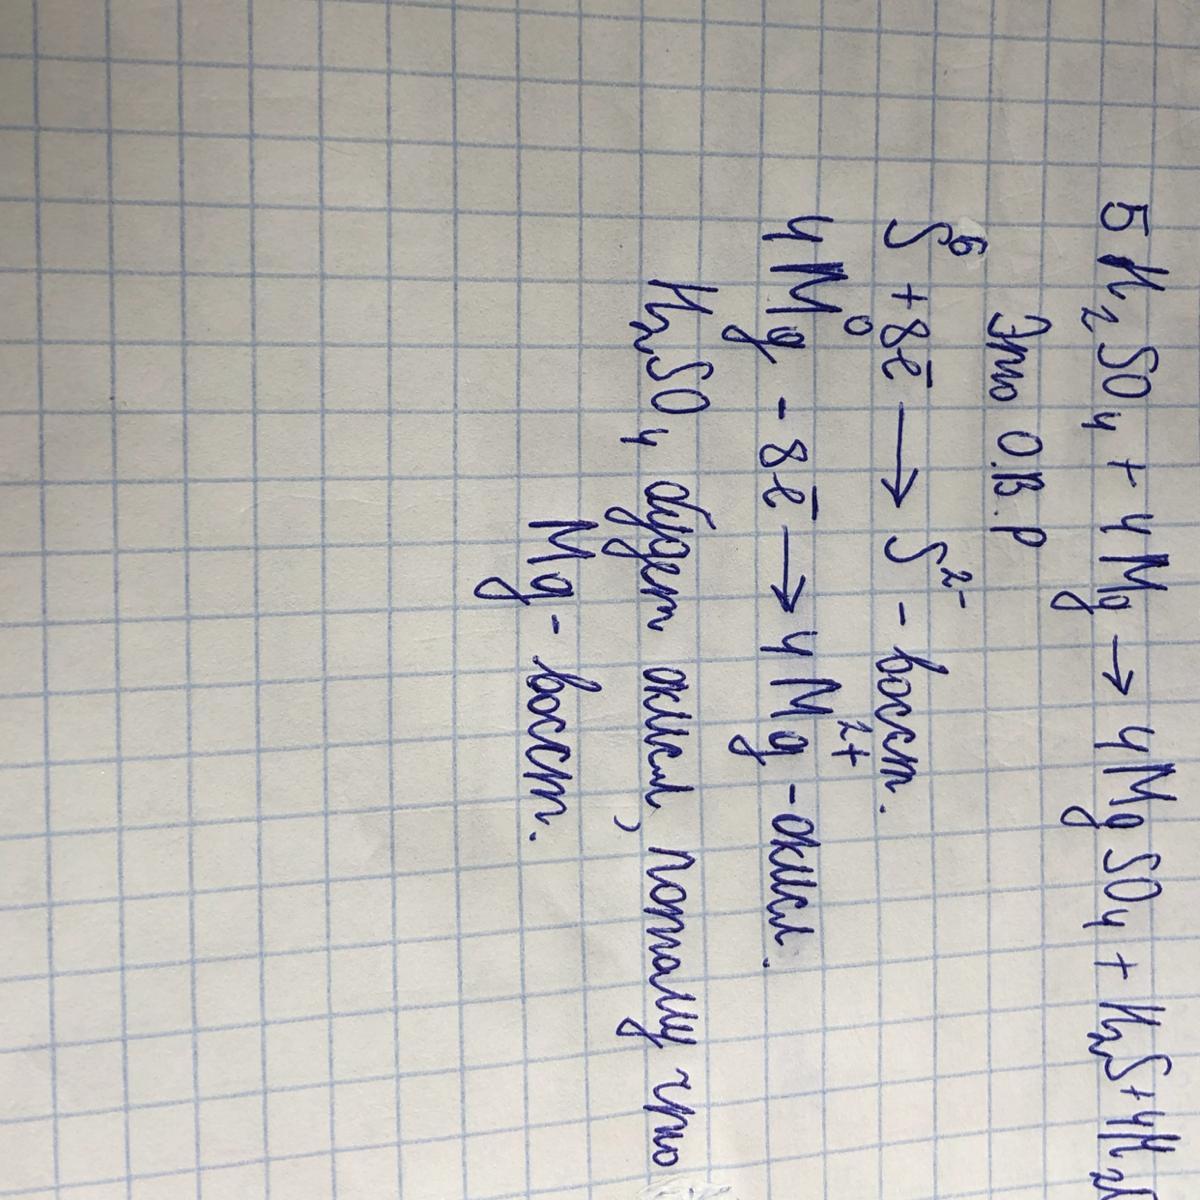 5 H₂SO₄ + 4Mg → 4MgSO₄ + H₂S + 4H₂
Это О.В.Р
S⁶ + 8ē → S²⁻ - восст.
4Mg⁰ - 8ē → 4Mg²⁺ - окисл.
H₂SO₄ будет окисл, потому что
Mg - восст.